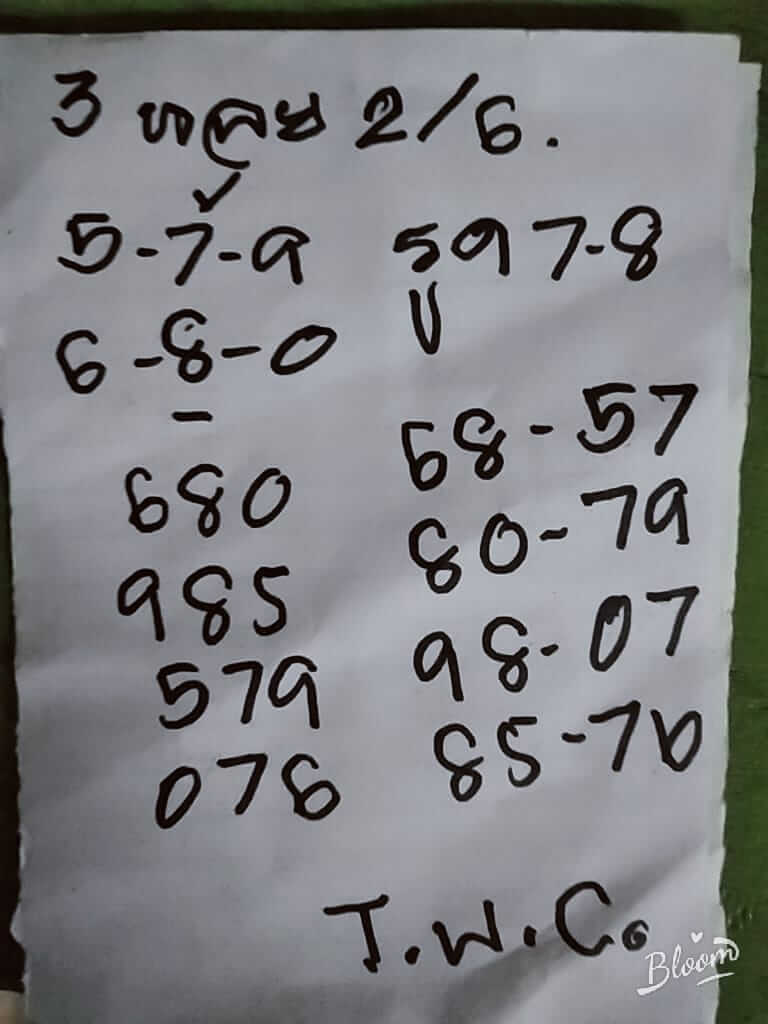 3 หลวย 2/6.
5-7-9 597-8
6-8-0 U
680 68-57
985 80-79
579 98-07
076 85-76
T.W.C.
Bloom